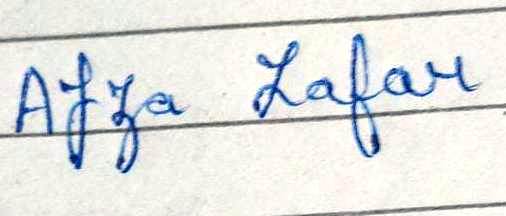 Afza Zafar